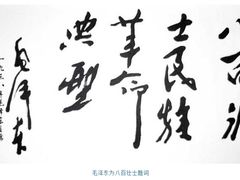 八百壮
士民族
革命
典型
毛泽东
毛泽东为八百壮士题词